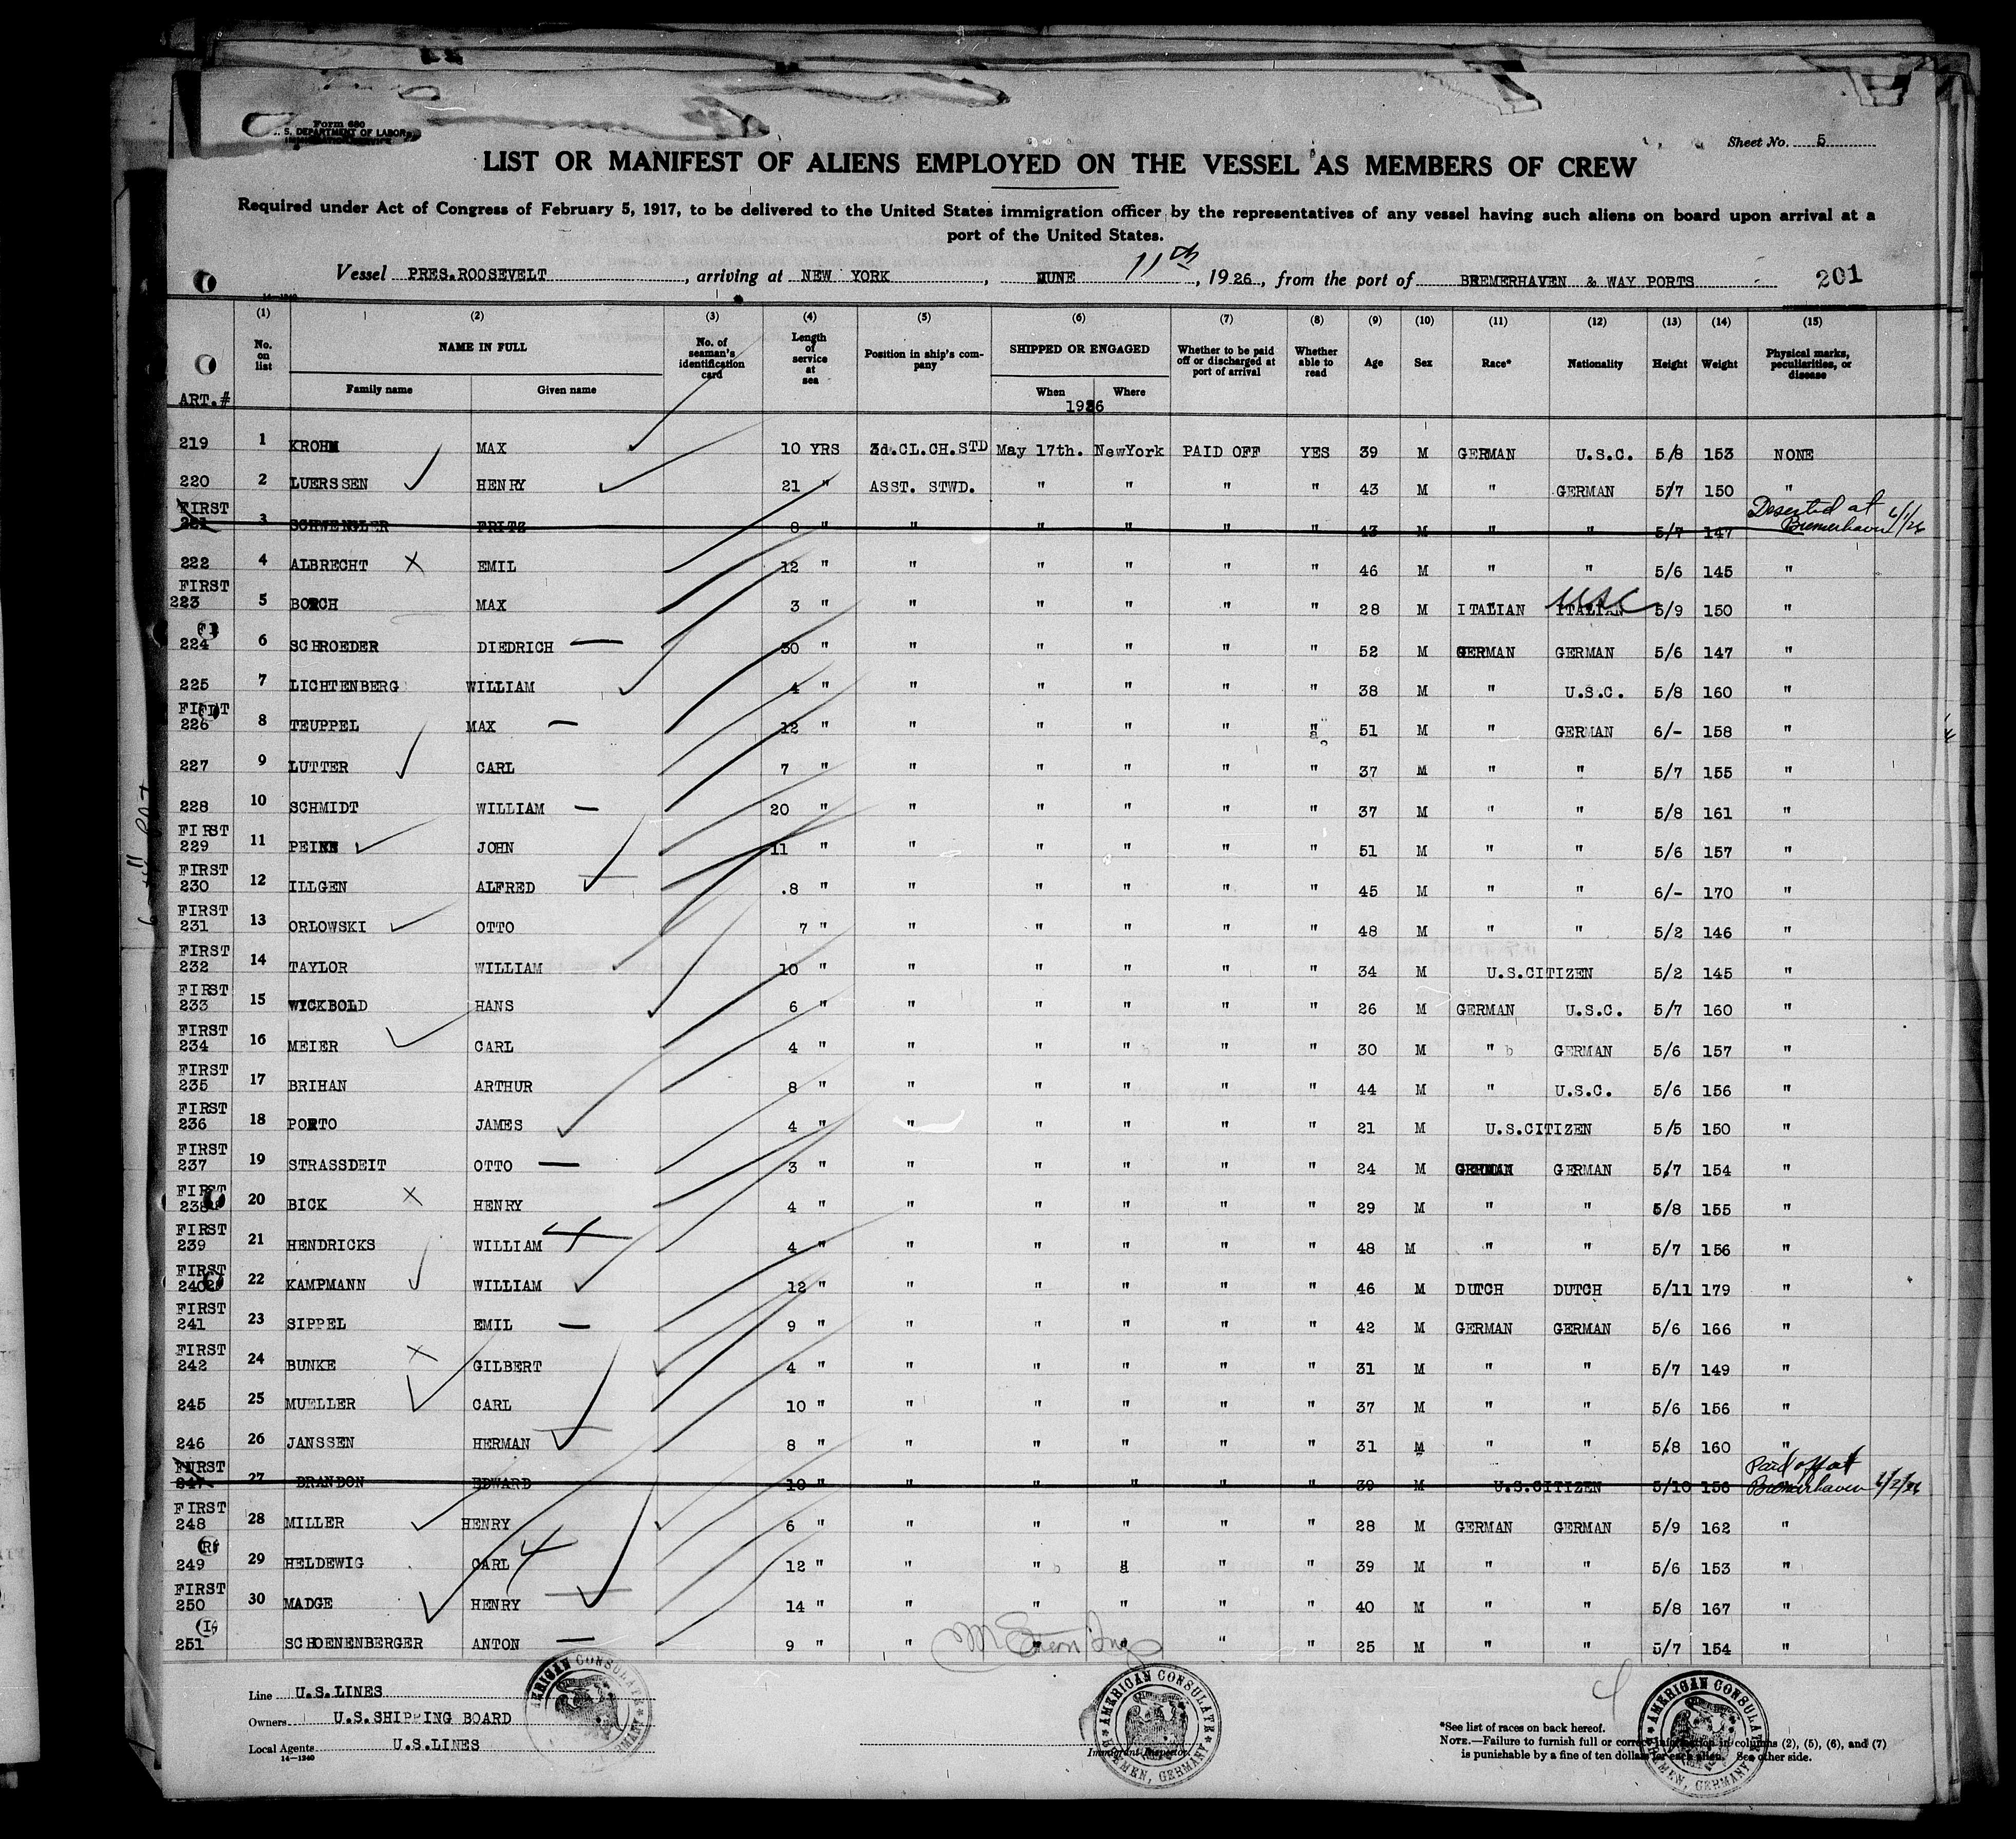 Form 680
S. DEPARTMENT OF LABOR
IMMIGRATION SERVICE
Sheet No. 5
LIST OR MANIFEST OF ALIENS EMPLOYED ON THE VESSEL AS MEMBERS OF CREW
Required under Act of Congress of February 5, 1917, to be delivered to the United States immigration officer by the representatives of any vessel having such aliens on board upon arrival at a
port of the United States.
Vessel PRES.ROOSEVELT, arriving at NEW YORK, JUNE 11th, 1926, from the port of BREMERHAVEN & WAY PORTS 201
14—1240
(1) (2) (3) (4) (5) (6) (7) (8) (9) (10) (11) (12) (13) (14) (15)
ART.# No. on list NAME IN FULL Family name Given name No. of seaman's identification card Length of service at sea Position in ship's company SHIPPED OR ENGAGED When Where 1926 Whether to be paid off or discharged at port of arrival Whether able to read Age Sex Race* Nationality Height Weight Physical marks, peculiarities, or disease
219 1 KROHN MAX 10 YRS 3d.CL.CH.STD May 17th. NewYork PAID OFF YES 39 M GERMAN U.S.C. 5/8 153 NONE
220 2 LUERSSEN HENRY 21 " ASST. STWD. " " " " 43 M " GERMAN 5/7 150 "
FIRST 221 3 SCHWENGLER FRITZ 8 " " " " " " 43 M " " 5/7 147 Deserted at Bremerhaven 6/1/26
222 4 ALBRECHT EMIL 12 " " " " " " 46 M " " 5/6 145 "
FIRST 223 5 BOTCH MAX 3 " " " " " " 28 M ITALIAN ITALIAN USC 5/9 150 "
224 6 SCHROEDER DIEDRICH 30 " " " " " " 52 M GERMAN GERMAN 5/6 147 "
225 7 LICHTENBERG WILLIAM 4 " " " " " " 38 M " U.S.C. 5/8 160 "
FIRST 226 8 TEUPPEL MAX 12 " " " " " " 51 M " GERMAN 6/- 158 "
227 9 LUTTER CARL 7 " " " " " " 37 M " " 5/7 155 "
228 10 SCHMIDT WILLIAM 20 " " " " " " 37 M " " 5/8 161 "
FIRST 229 11 PEINN JOHN 11 " " " " " " 51 M " " 5/6 157 "
FIRST 230 12 ILLGEN ALFRED .8 " " " " " " 45 M " " 6/- 170 "
FIRST 231 13 ORLOWSKI OTTO 7 " " " " " " 48 M " " 5/2 146 "
FIRST 232 14 TAYLOR WILLIAM 10 " " " " " " 34 M U.S.CITIZEN 5/2 145 "
FIRST 233 15 WYCKBOLD HANS 6 " " " " " " 26 M GERMAN U.S.C. 5/7 160 "
FIRST 234 16 MEIER CARL 4 " " " " " " 30 M " GERMAN 5/6 157 "
FIRST 235 17 BRIHAN ARTHUR 8 " " " " " " 44 M " U.S.C. 5/6 156 "
FIRST 236 18 PORTO JAMES 4 " " " " " " 21 M U.S.CITIZEN 5/5 150 "
FIRST 237 19 STRASSDEIT OTTO 3 " " " " " " 24 M GERMAN GERMAN 5/7 154 "
FIRST 238 20 BICK HENRY 4 " " " " " " 29 M " " 5/8 155 "
FIRST 239 21 HENDRICKS WILLIAM 4 " " " " " " 48 M " " 5/7 156 "
FIRST 240 22 KAMPMANN WILLIAM 12 " " " " " " 46 M DUTCH DUTCH 5/11 179 "
FIRST 241 23 SIPPEL EMIL 9 " " " " " " 42 M GERMAN GERMAN 5/6 166 "
FIRST 242 24 BUNKE GILBERT 4 " " " " " " 31 M " " 5/7 149 "
245 25 MUELLER CARL 10 " " " " " " 37 M " " 5/6 156 "
246 26 JANSSEN HERMAN 8 " " " " " " 31 M " " 5/8 160 "
FURST 247 27 BRANDON EDWARD 10 " " " " " " 39 M U.S.CITIZEN 5/10 156 Paid off at Bremerhaven 6/2/26
FIRST 248 28 MILLER HENRY 6 " " " " " " 28 M GERMAN GERMAN 5/9 162 "
249 29 HELDEWIG CARL 12 " " " " " " 39 M " " 5/6 153 "
FIRST 250 30 MADGE HENRY 14 " " " " " " 40 M " " 5/8 167 "
251 SCHOENENBERGER ANTON 9 " " " " " " 25 M " " 5/7 154 "
Line U.S.LINES
Owners U.S.SHIPPING BOARD
Local Agents U.S.LINES
14—1240
AMERICAN CONSULATE
AMERICAN CONSULATE BREMEN, GERMANY
Immigrant Inspector.
AMERICAN CONSULATE BREMEN, GERMANY
*See list of races on back hereof.
NOTE.—Failure to furnish full or correct information in columns (2), (5), (6), and (7)
is punishable by a fine of ten dollars for each alien. See other side.